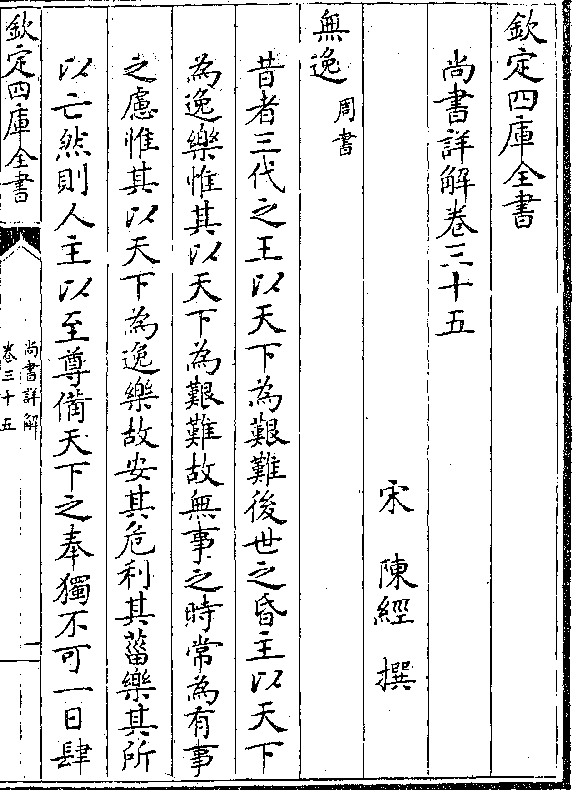 欽定四庫全書
尚書詳解卷三十五
宋 陳經 撰
無逸 周書
昔者三代之王以天下為艱難後世之昏主以天下
為逸樂惟其以天下為艱難故無事之時常為有事
之慮惟其以天下為逸樂故安其危利其菑樂其所
以亡然則人主以至尊備天下之奉獨不可一日肆
欽定四庫全書
尚書詳解
卷三十五